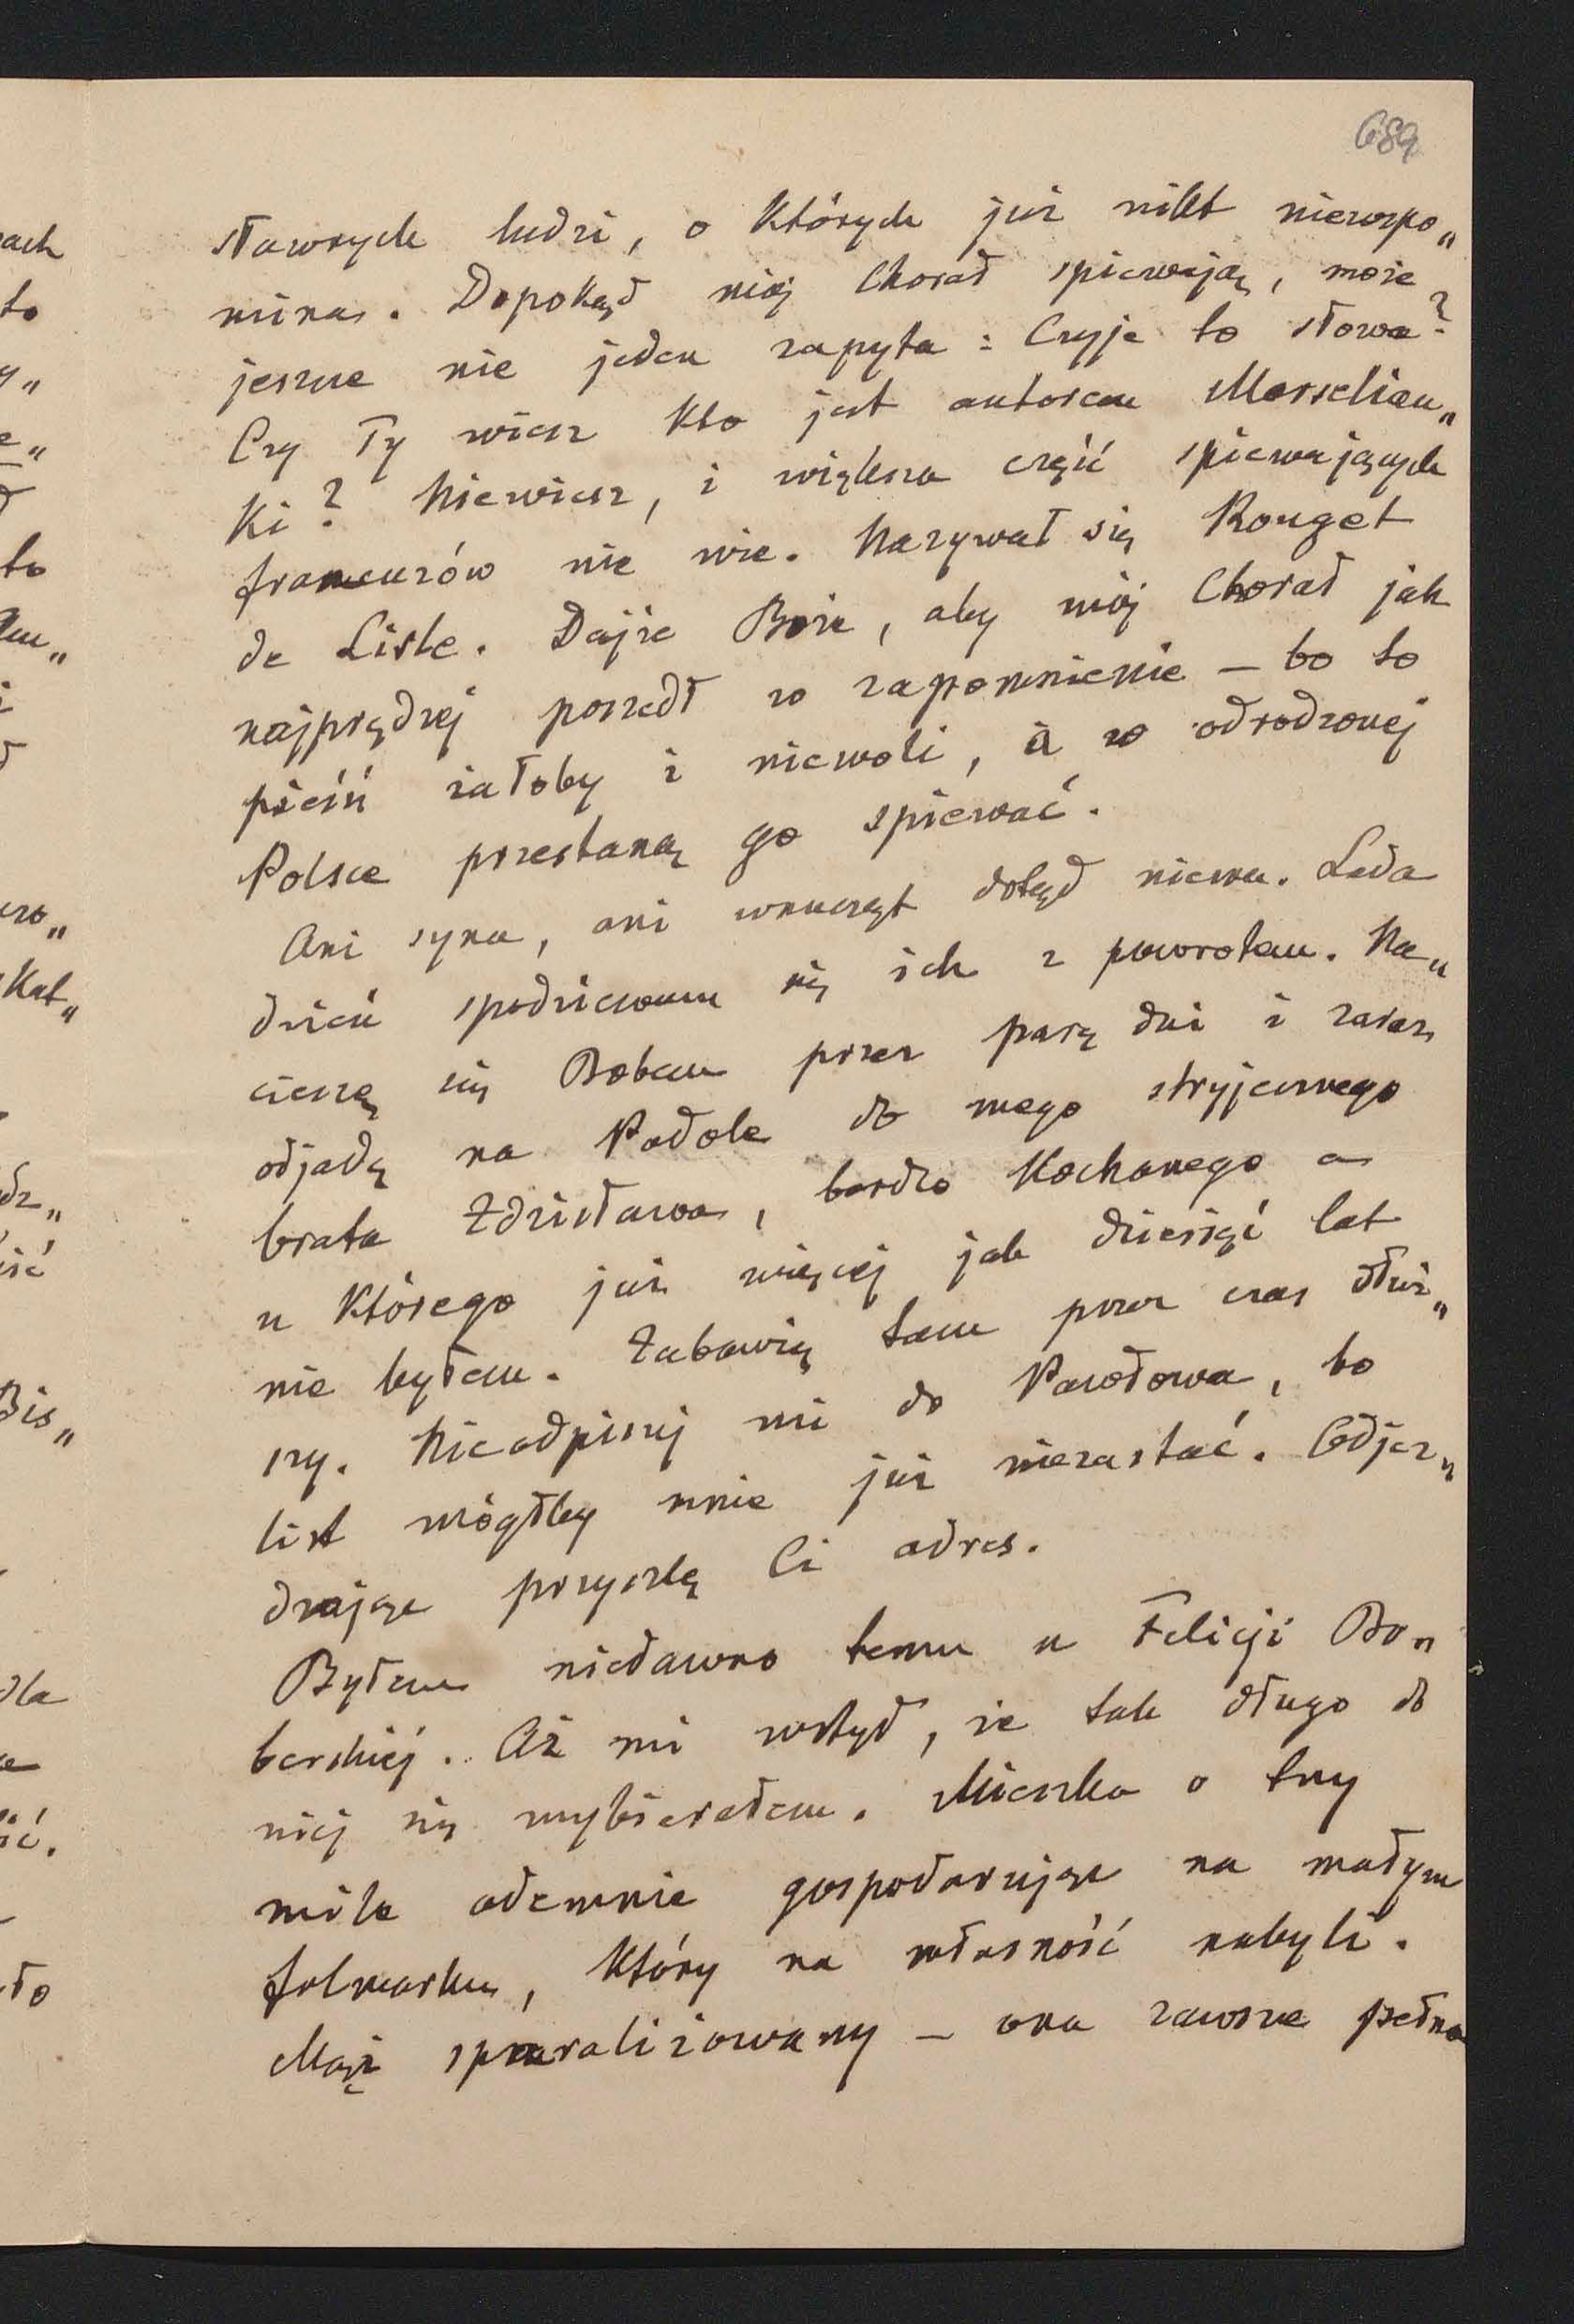 689
sławnych ludzi, o których już nikt niewspo„
mina. Dopokąd mój Chorał spiewają, może
jeszcze nie jeden zapyta: Czyje to słowa?
Czy Ty wiesz kto jest autorem Marselian„
ki? Niewiesz, i większa część spiewających
francuzów nie wie. Nazywał się Rouget
de Lisle. Dajże Boże, aby mój Chorał jak
najprędzej poszedł w zapomnienie – bo to
pieśń żałoby i niewoli, a w odrodzonej
Polsce przestaną go spiewać.
Ani syna, ani wnucząt dotąd niema. Lada
dzień spodziewam się ich z powrotem. Na„
cieszę się Bobem przez parę dni i zaraz
odjadę na Podole do mego stryjecznego
brata Zdzisława, bardzo kochanego a
u którego już więcej jak dziesięć lat
nie byłem. Zabawię tam przez czas dłuż„
szy. Nieodpisuj mi do Pawłowa, bo
list mógłby mnie już niezastać. Odjeż„
dżając przyszlę Ci adres.
Byłem niedawno temu u Felicji Bo„
berskiéj. Aż mi wstyd, że tak długo do
niéj się wybierałem. Mieszka o trzy
mile odemnie gospodarując na małym
folwarku, który na własność nabyli.
Mąż sparaliżowany – ona zawsze pełna
ach
to
to
i
uro„
Kat„
ść
Bis„
dla
ść.
ło